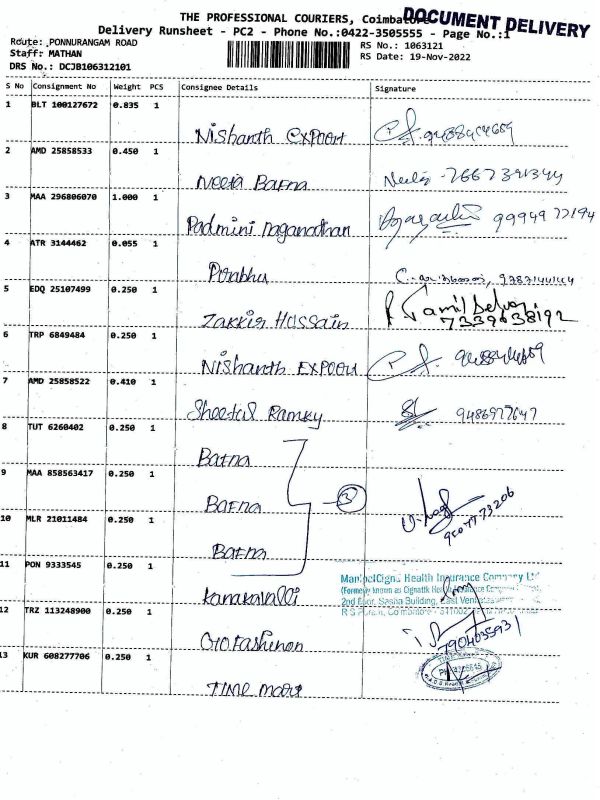 THE PROFESSIONAL COURIERS, Coimbatore
DOCUMENT DELIVERY
Delivery Runsheet - PC2 - Phone No.:0422-3505555 - Page No.:1
Route: PONNURANGAM ROAD
RS No.: 1063121
Staff: MATHAN
RS Date: 19-Nov-2022
DRS No.: DCJB106312101
S No Consignment No Weight PCS Consignee Details Signature
1 BLT 100127672 0.835 1
Nishanth Export
2 AMD 25858533 0.450 1
Neeta Bafna
3 MAA 296806070 1.000 1
Padmini Naganathan 9994972194
4 ATR 3144462 0.055 1
Prabhu
5 EDQ 25107499 0.250 1
Zakkir Hussain
7339038192
6 TRP 6849484 0.250 1
Nishanth Export
7 AMD 25858522 0.410 1
Sheetal Ramky 9486977647
8 TUT 6260402 0.250 1
Bafna
9 MAA 858563417 0.250 1
Bafna 3
10 MLR 21011484 0.250 1
Bafna
11 PON 9333545 0.250 1
ManipalCigna Health Insurance Company Ltd
(Formerly known as Cignattk Health Insurance Company
Kanakavalli
2nd Floor, Sasha Building, East Venkatasamy
R S Puram, Coimbatore - 641002
12 TRZ 113248900 0.250 1
Oto Fashinon
7904035931
13 KUR 608277706 0.250 1
Time mart